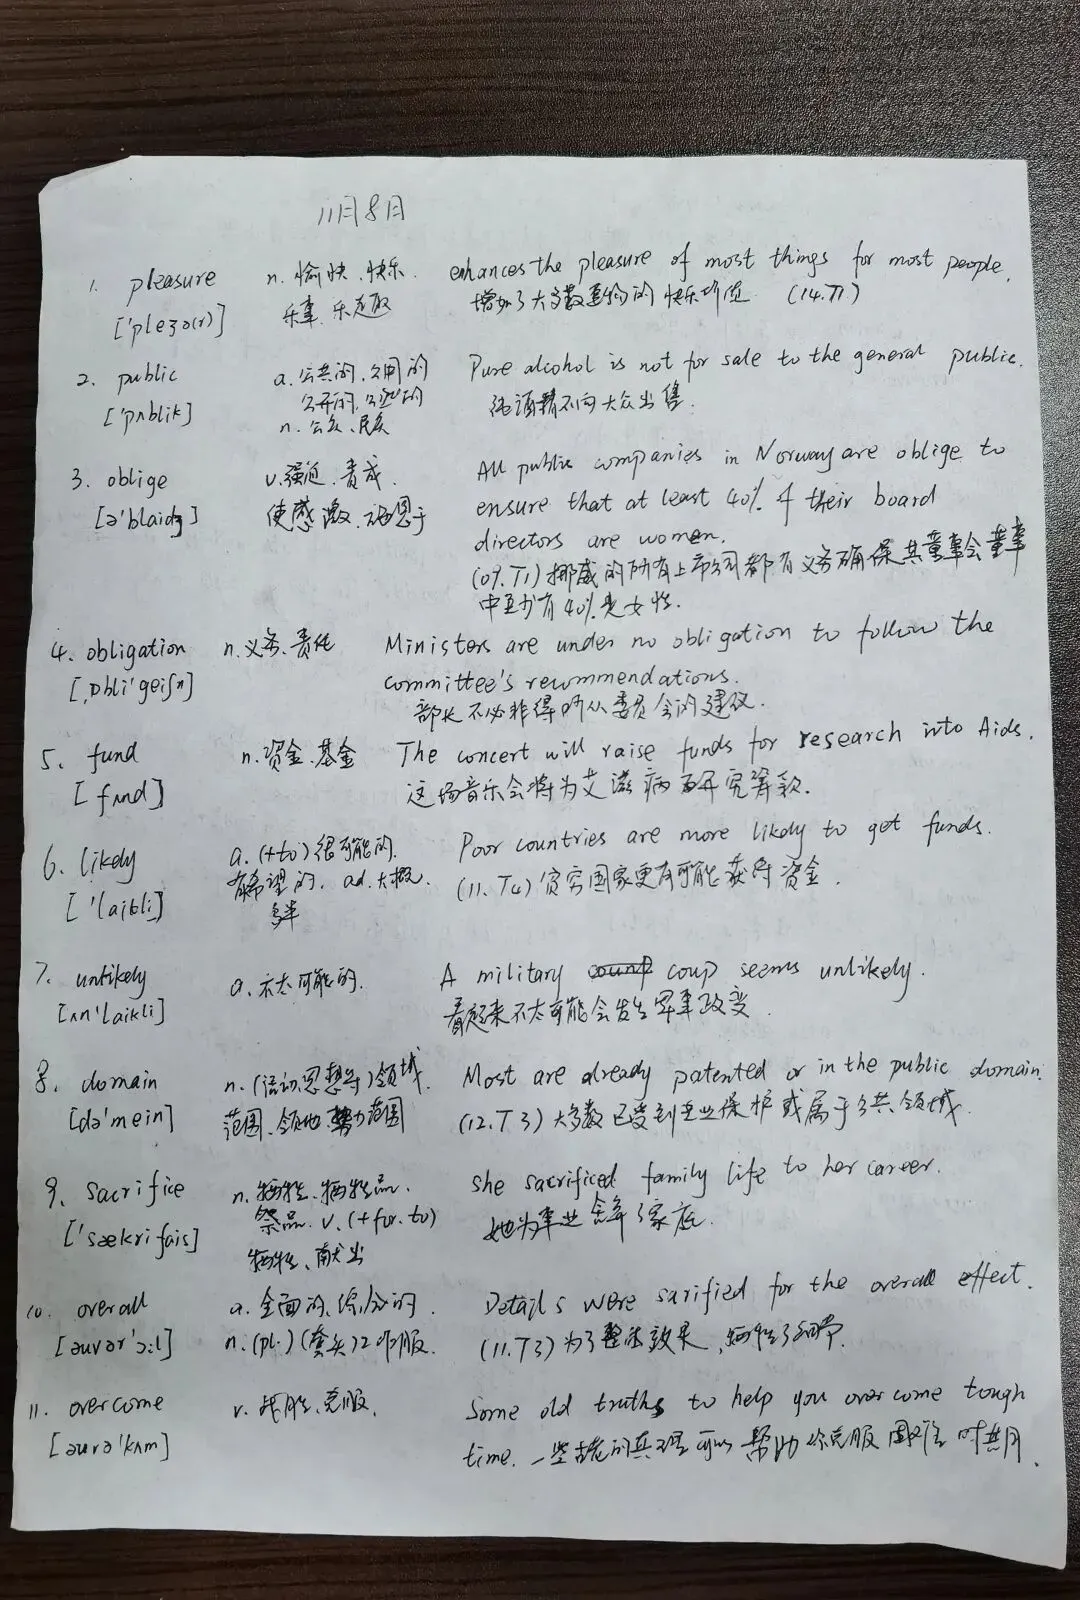 11月8日
1. pleasure n. 愉快、快乐. enhances the pleasure of most things for most people.
['pleʒə(r)] 乐事、乐趣 增加了大多数事物的快乐价值 (14.T1)
2. public a. 公共的、公用的 Pure alcohol is not for sale to the general public.
['pʌblik] 公开的、公立的 纯酒精不向大众出售.
n. 公众、民众
3. oblige v. 强迫、责成. All public companies in Norway are oblige to
[ə'blaidʒ] 使感激、施恩于 ensure that at least 40% of their board
directors are women.
(09.T1) 挪威的所有上市公司都有义务确保其董事会董事
中至少有40%是女性.
4. obligation n. 义务、责任 Ministers are under no obligation to follow the
[ˌɒbli'geiʃn] committee's recommendations.
部长不必非得听从委员会的建议.
5. fund n. 资金、基金 The concert will raise funds for research into Aids.
[fʌnd] 这场音乐会将为艾滋病研究筹款.
6. likely a. (+to) 很可能的. Poor countries are more likely to get funds.
['laikli] 有希望的, ad. 大概. (11.T4) 贫穷国家更有可能获得资金.
多半
7. unlikely a. 不太可能的. A military coup seems unlikely.
[ʌn'laikli] 看起来不太可能会发生军事政变
8. domain n. (活动、思想等) 领域. Most are already patented or in the public domain.
[də'mein] 范围、领地、势力范围 (12.T3) 大多数已受到专业保护或属于公共领域.
9. sacrifice n. 牺牲、牺牲品. she sacrificed family life to her career.
['sækrifais] 祭品. v. (+for. to) 她为事业舍弃了家庭.
牺牲、献出
10. overall a. 全面的、综合的. Details were sarified for the overall effect.
[əuvər'ɔ:l] n. (pl.) (套头) 工作服. (11.T3) 为了整体效果, 牺牲了细节.
11. overcome v. 战胜、克服. Some old truths to help you overcome tough
[əuvə'kʌm] time. 一些古老的真理可以帮助你克服困难时期.